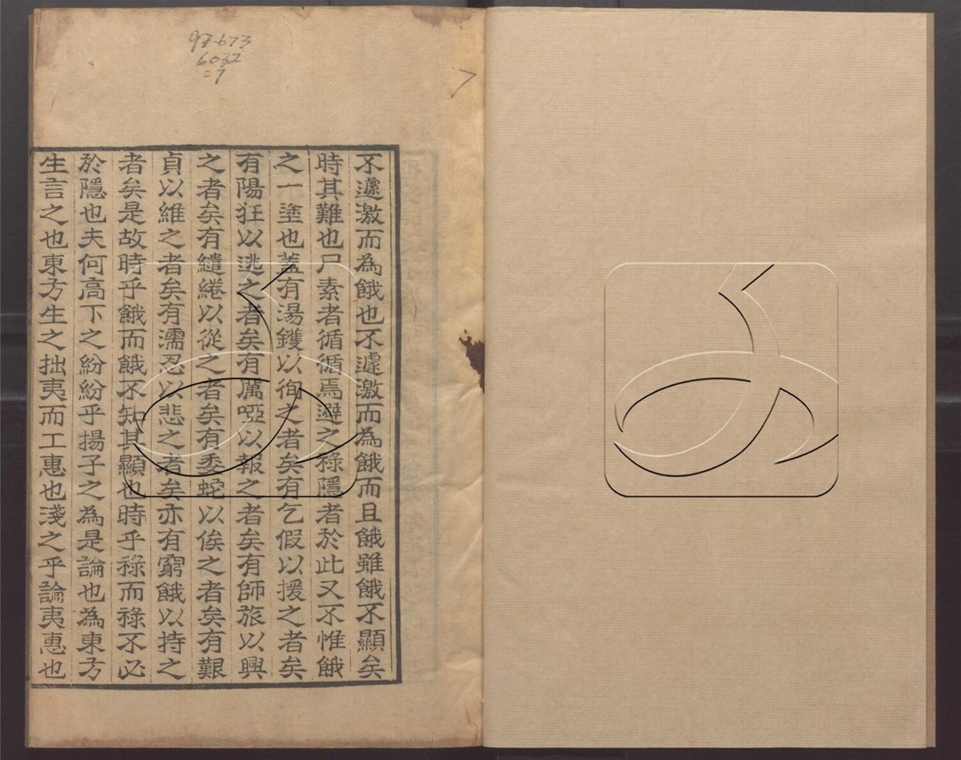 97-673
6032
=7
不遽激而為餓也不遽激而為餓而且餓雖餓不顯矣
時其難也尸素者循循焉避之祿隱者於此又不惟餓
之一塗也蓋有湯鑊以徇之者矣有乞假以援之者矣
有陽狂以逃之者矣有厲啞以報之者矣有師旅以興
之者矣有繾綣以從之者矣有委蛇以俟之者矣有艱
貞以維之者矣有濡忍以悲之者矣亦有窮餓以持之
者矣是故時乎餓而餓不知其顯也時乎祿而祿不必
於隱也夫何高下之紛紛乎揚子之為是論也為東方
生言之也東方生之拙夷而工惠也淺之乎論夷惠也